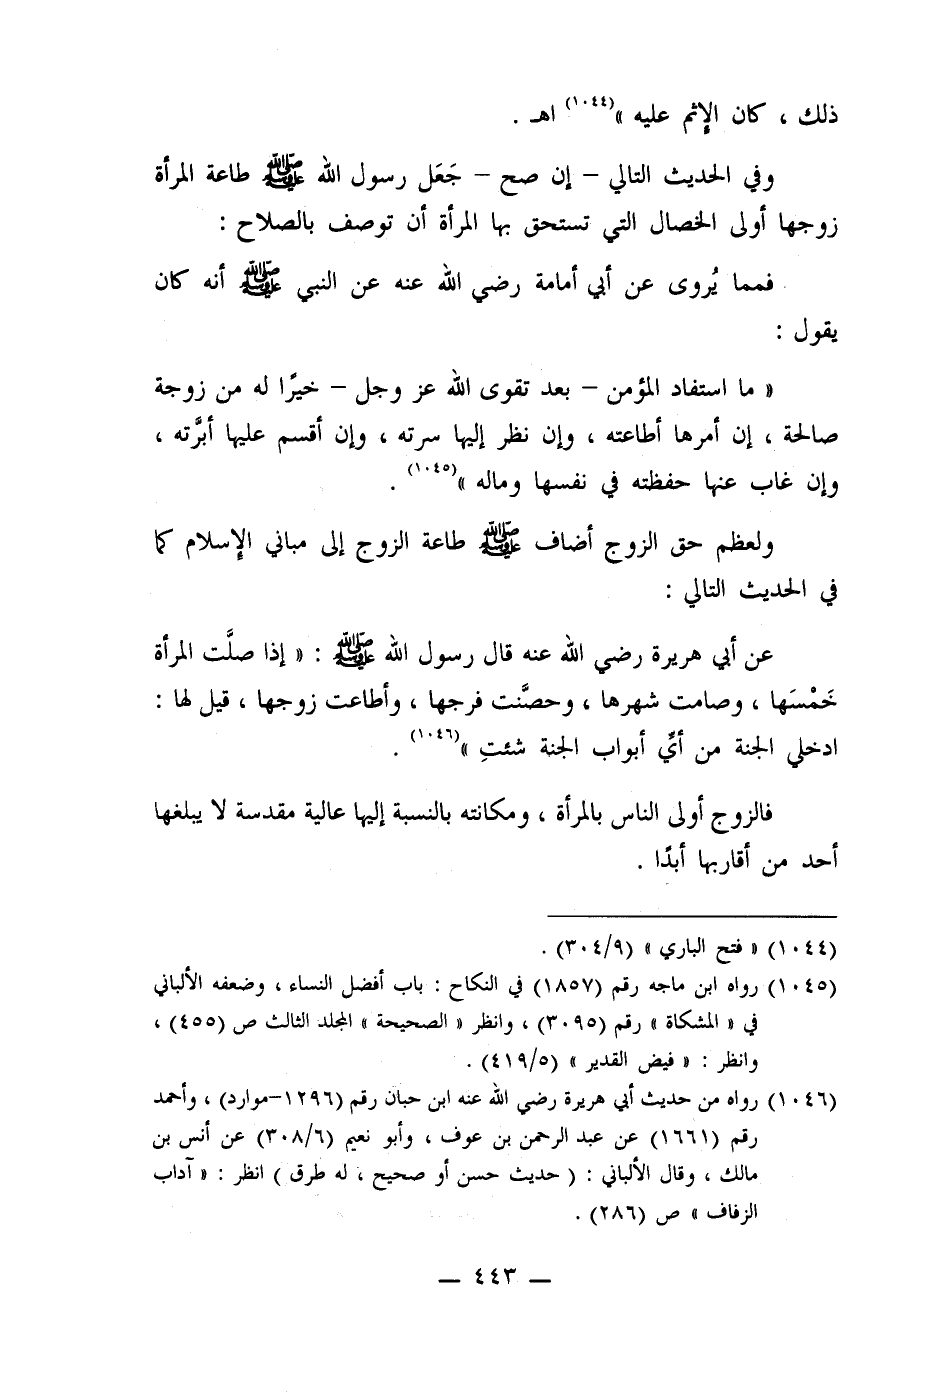 ذلك ، كان الإثم عليه »(١٠٤٤) اهـ .
وفي الحديث التالي – إن صح – جَعَل رسول الله ﷺ طاعة المرأة
زوجها أولى الخصال التي تستحق بها المرأة أن توصف بالصلاح :
فمما يُروى عن أبي أمامة رضي الله عنه عن النبي ﷺ أنه كان
يقول :
« ما استفاد المؤمن – بعد تقوى الله عز وجل – خيرًا له من زوجة
صالحة ، إن أمرها أطاعته ، وإن نظر إليها سرته ، وإن أقسم عليها أبرَّته ،
وإن غاب عنها حفظته في نفسها وماله »(١٠٤٥) .
ولعظم حق الزوج أضاف ﷺ طاعة الزوج إلى مباني الإسلام كما
في الحديث التالي :
عن أبي هريرة رضي الله عنه قال رسول الله ﷺ : « إذا صلَّت المرأة
خَمْسَها ، وصامت شهرها ، وحصَّنت فرجها ، وأطاعت زوجها ، قيل لها :
ادخلي الجنة من أيِّ أبواب الجنة شئتِ »(١٠٤٦) .
فالزوج أولى الناس بالمرأة ، ومكانته بالنسبة إليها عالية مقدسة لا يبلغها
أحد من أقاربها أبدًا .
(١٠٤٤) « فتح الباري » (٣٠٤/٩) .
(١٠٤٥) رواه ابن ماجه رقم (١٨٥٧) في النكاح : باب أفضل النساء ، وضعفه الألباني
في « المشكاة » رقم (٣٠٩٥) ، وانظر « الصحيحة » المجلد الثالث ص (٤٥٥) ،
وانظر : « فيض القدير » (٤١٩/٥) .
(١٠٤٦) رواه من حديث أبي هريرة رضي الله عنه ابن حبان رقم (١٢٩٦–موارد) ، وأحمد
رقم (١٦٦١) عن عبد الرحمن بن عوف ، وأبو نعيم (٣٠٨/٦) عن أنس بن
مالك ، وقال الألباني : ( حديث حسن أو صحيح ، له طرق ) انظر : « آداب
الزفاف » ص (٢٨٦) .
— ٤٤٣ —